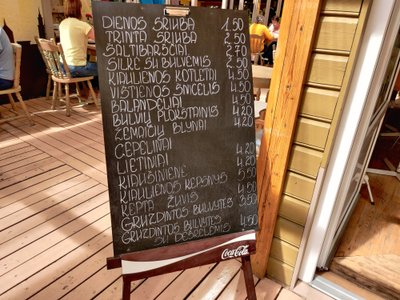 DIENOS SRIUBA 1.50
TRINTA SRIUBA 2.50
ŠALTIBARŠČIAI 2.70
SILKĖ SU BULVĖMIS 2.50
KIAULIENOS KOTLETAI 4.50
VIŠTIENOS SNICELIS 4.50
BALANDĖLIAI 4.50
BULVIŲ PLOKŠTAINIS 4.20
ŽEMAIČIŲ BLYNAI 4.20
CEPELINAI
LIETINIAI 4.20
KIAUŠINIENĖ 4.20
KIAULIENOS KEPSNYS 5.50
KEPTA ŽUVIS 4.50
GRUZDINTOS BULVYTĖS 3.50
GRUZDINTOS BULVYTĖS 4.50
SU DEŠRELĖMIS
Coca-Cola